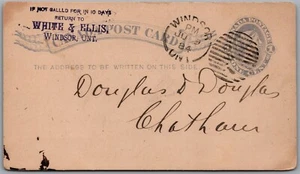 IF NOT CALLED FOR IN 10 DAYS
RETURN TO
WHITE & ELLIS,
WINDSOR, ONT.
CANADA POST CARD
WINDSOR
PM
84
ONT
THE ADDRESS TO BE WRITTEN ON THIS SIDE
Douglas & Douglas
Chatham